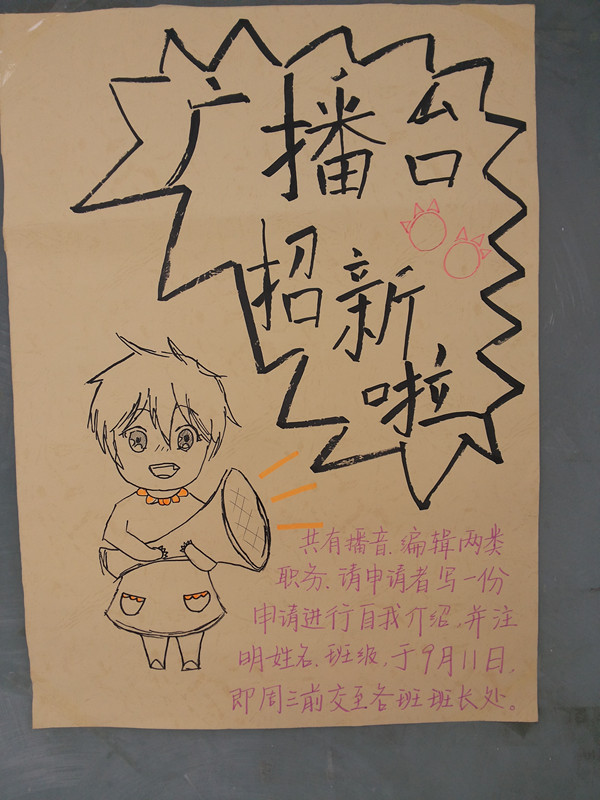 广播台
招新
啦
共有播音、编辑两类
职务、请申请者写一份
申请进行自我介绍,并注
明姓名、班级,于9月11日,
即周三前交至各班班长处。